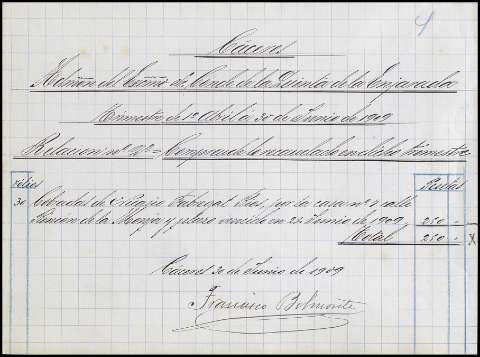 4
Cáceres
Admon del Exmo Sr. Conde de la Quinta de la Enjarada
Trimestre de 1º Abril a 30 de Junio de 1909
Relacion nº 2º = Comprende lo recaudado en dicho trimestre
Pesetas
30 Cobadas de Fabregat por la casa nº 4 calle
Rincon de la Monja y plazo vencido en 24 Junio de 1909 250 "
Total 250 " X
Cáceres 30 de Junio de 1909
Francisco Belmonte